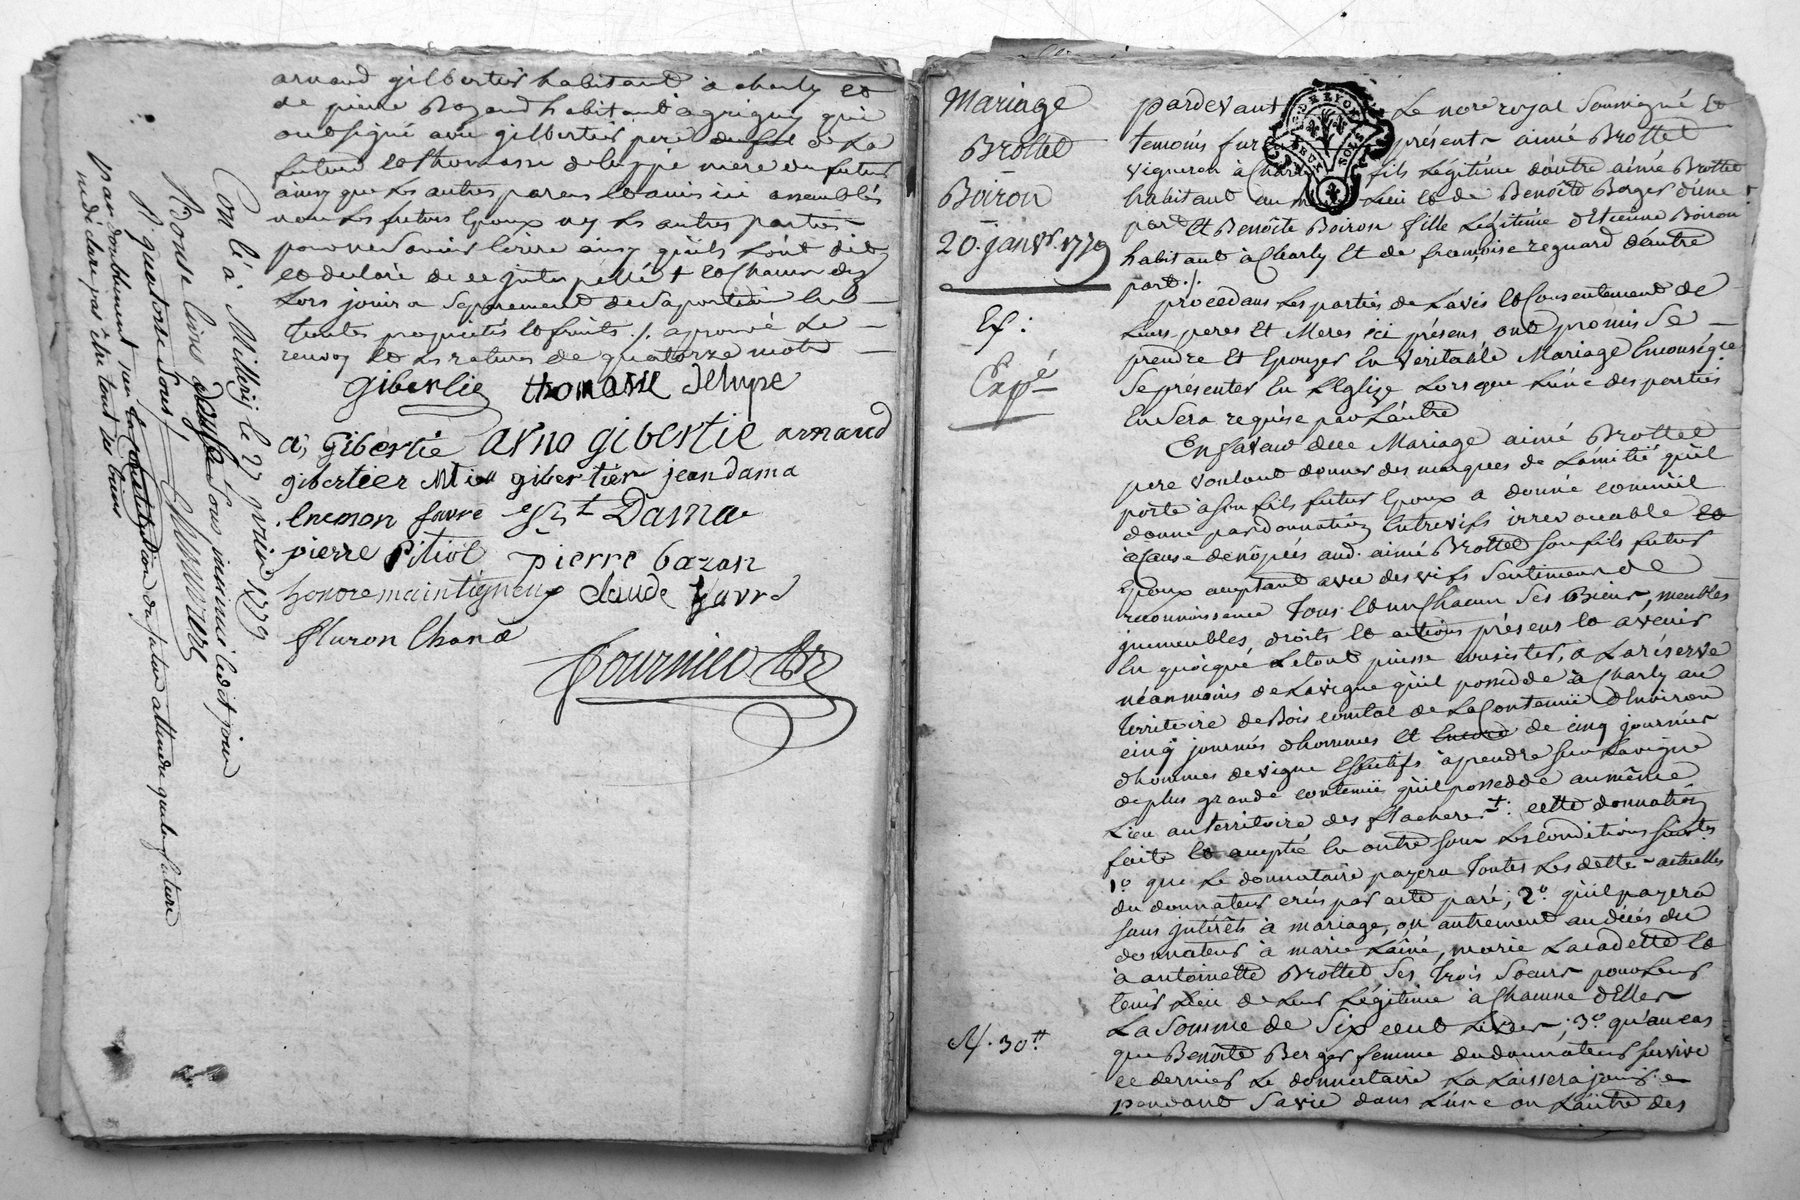 arnaud gilbertier habitant à charly et
de pierre Bazand habitant à grigny qui
ont signé avec gilbertier pere de la
future et thomasse deluppé mere du futur
ainsy que les autres parens et amis ici assemblés
non les futurs Epoux ny les autres parties
pour ne savoir écrire ainsy qu'ils l'ont dit
et déclaré de ce interpellés + et chacun des
Lors jouira séparement de sa portion en
toutes proprietés et fruits ./. aprouvé le
renvoy et les ratures de quatorze mots
giberlie thomasse delupe
a, Gibertie arno gibertie arnaud
gibertier gibertier jean dama
Enemon favre Dama
pierre Pitiot pierre bazan
honore maintigneux claude favre
fluron Chana
Fournier
Con lé à Millery le 27 janvier 1779
R onse livres sous
R quatorse sous
par doublement sur la constitution du futur attendu que la future
ne declare pas être tout ses biens
Mariage
Brottet
Boiron
20. janvr. 1779
Ex:
Expé
R. 30 tt
GEN. DE LYON
DEUX SOLS
pardevant Le nore royal soussigné et
temoins furent présents aimé Brottet
vigneron à Charly fils Légitime d'autre aimé Brottet
habitant au même Lieu et de Benoite Berger d'une
part Et Benoîte Boiron fille Légitime d'Etienne Boiron
habitant à Charly Et de françoise reguard d'autre
part ./.
procedans Les parties de L'avis et Consentement de
Leurs peres Et Meres ici présens, ont promis se
prendre Et Epouzer En veritable Mariage Enconséqce
se présenter En L'Eglize Lorsque L'une des parties
En sera requise par L'autre
En faveur duce Mariage aimé Brottet
pere voulant donner des marques de L'amitié qu'il
porte à son fils futur Epoux a donné comm'il
donne par donnation Entrevifs irrevocable et
à cause de nôpces aud. aimé Brottet son fils futur
Epoux acceptant avec des vifs sentimens de
reconnoissance Tous et un Chacun ses Biens, meubles
immeubles, droits et actions présens et avenir
En quoique Le tout puisse consister, a La réserve
néanmoins de La vigne qu'il possede à Charly au
Territoire de Bois comtal de La Contenüe d'Environ
cinq journés d'hommes Et Encore de cinq journées
d'hommes de vigne Effectifs à prendre sur La vigne
de plus grande contenüe qu'il possedde au même
Lieu au territoire des flacheres +: cette donnation
faite et acceptée En outre sous Les conditions suivtes
1o que Le donnataire payera Toutes Les dettes actuelles
du donnateur créés par acte paré; 2o qu'il payera
sans intérêts à mariage, ou autrement au décés du
donnateur à marie L'aîné, marie La cadette et
à antoinette Brottet ses Trois soeurs pour Leur
tenir Lieu de Leur Légitime à Chacune d'Elles
La somme de Six cent Livres; 3o qu'au cas
que Benoîte Berger femme du donnateur survive
ce dernier Le donnataire La Laissera jouir
pendant sa vie dans L'une ou L'autre des